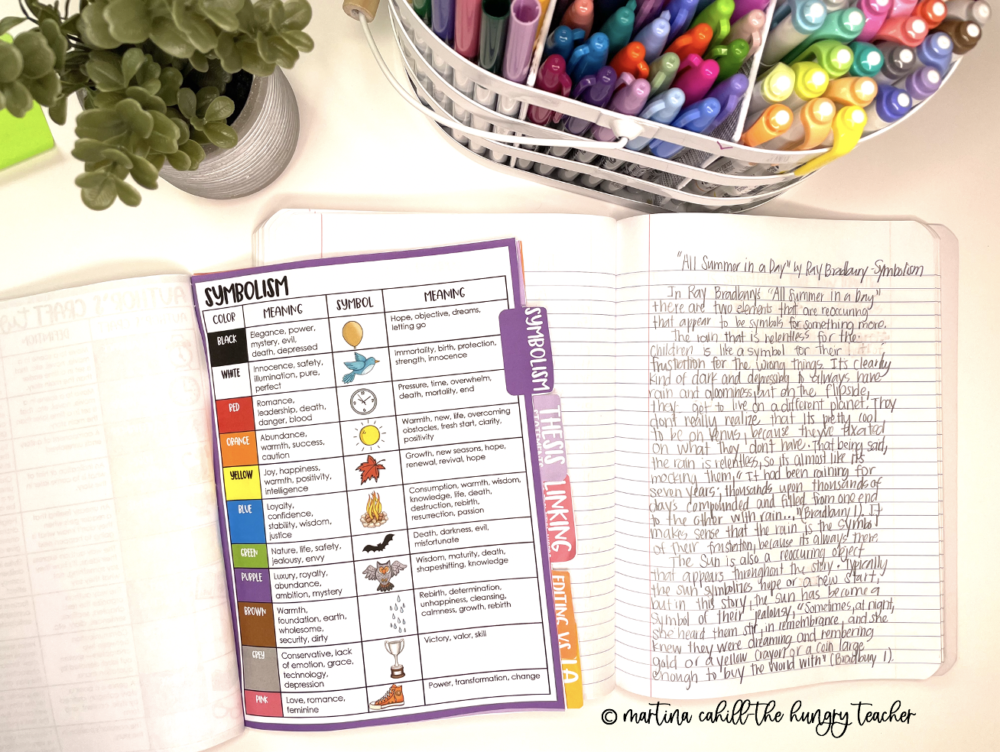 SYMBOLISM
COLOR MEANING SYMBOL MEANING
BLACK
Elegance, power,
mystery, evil,
death, depressed
Hope, objective, dreams,
letting go
WHITE
Innocence, safety,
illumination, pure,
perfect
Immortality, birth, protection,
strength, innocence
RED
Romance,
leadership, death,
danger, blood
Pressure, time, overwhelm,
death, mortality, end
ORANGE
Abundance,
warmth, success,
caution
Warmth, new, life, overcoming
obstacles, fresh start, clarity,
positivity
YELLOW
Joy, happiness,
warmth, positivity,
intelligence
Growth, new seasons, hope,
renewal, revival, hope
BLUE
Loyalty,
confidence,
stability, wisdom,
justice
Consumption, warmth, wisdom,
knowledge, life, death,
destruction, rebirth,
resurrection, passion
GREEN
Nature, life, safety,
jealousy, envy
Death, darkness, evil,
misfortunate
PURPLE
Luxury, royalty,
abundance,
ambition, mystery
Wisdom, maturity, death,
shapeshifting, knowledge
BROWN
Warmth,
foundation, earth,
wholesome,
security, dirty
Rebirth, determination,
unhappiness, cleansing,
calmness, growth, rebirth
GREY
Conservative, lack
of emotion, grace,
technology,
depression
Victory, valor, skill
PINK
Love, romance,
feminine
Power, transformation, change
SYMBOLISM
THESIS
LINKING
EDITING VS.
"All Summer in a Day" by Ray Bradbury - Symbolism
In Ray Bradbury's "All Summer in a Day"
there are two element that are reoccuring
that appear to be symbols for something more.
The rain that is relentless for the
children is like a symbol for their
frustration for the wrong things. It's clearly
kind of dark and depressing to always have
rain and gloominess, but on the flipside,
they get to live on a different planet. They
don't really realize that its pretty cool
to be on Venus, because they're fixated
on what they don't have. That being said,
the rain is relentless, so its almost like its
mocking them, "It had been raining for
seven years; thousands upon thousands of
days compounded and filled from one end
to the other with rain...," (Bradbury 1). It
makes sense that the rain is the symbol
of their frustration, because its always there.
The Sun is also a reoccuring object
that appears throughout the story. Typically
the sun symbolizes hope or a new start,
but in this story, the sun has become a
symbol of their jealousy, "Sometimes, at night,
she heard them stir, in remembrance, and she
knew they were dreaming and rembering
gold or a yellow crayon or a coin large
enough to buy the world with" (Bradbury 1).
© martina cahill-the hungry teacher